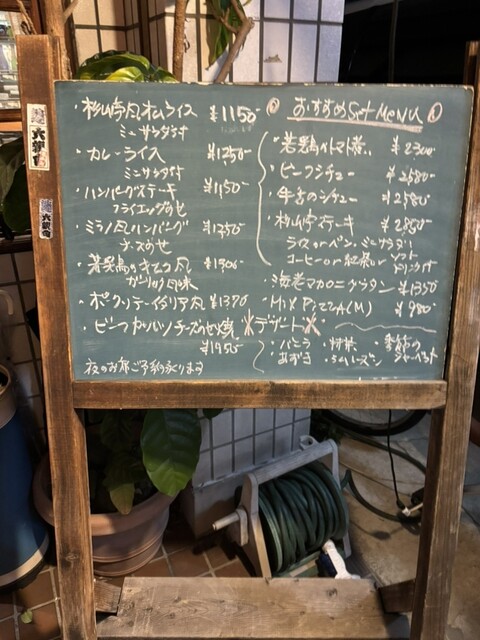 ・杉山亭風オムライス ¥1150-
ミニサンダラ付
・カレーライス ¥1250-
ミニサンダラ付
・ハンバーグステーキ ¥1150-
フライエッグのせ
・ミラノ風ハンバーグ ¥1350-
チーズのせ
・若鶏のキエフ風 ¥1300-
ガーリック風味
・ポークソテーイタリア風 ¥1370
・ビーフカツパン/チーズのせ焼
¥1950-
夜のお席ご予約承ります
おすすめ Set MeNU
・若鶏のトマト煮 ¥2300-
・ビーフシチュー ¥2580-
・牛舌のシチュー ¥2580-
・杉山亭ステーキ ¥2850-
ライス or パン、ミニサラダ
コーヒー or 紅茶 or ソフトドリンク付
・海老マカロニグラタン ¥1350
・Mix PizzA(M) ¥980-
※デザート※
・バニラ ・抹茶 ・季節の
・あずき ・ラムレーズン シャーベット